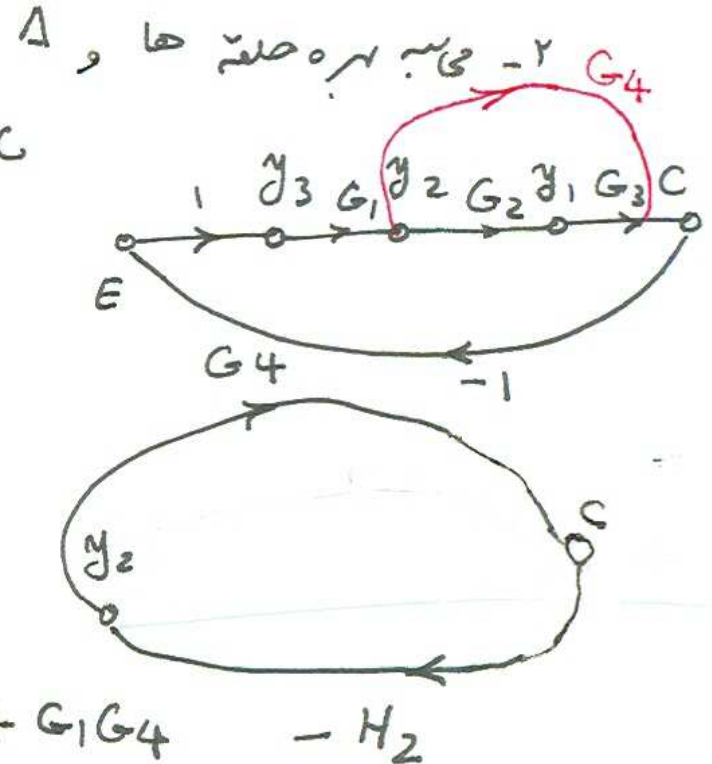 ۲- محاسبه بهره حلقه ها و Δ
G4
C
1 y3 G1 y2 G2 y1 G3 C
E
-1
G4
y2 C
- H2
G1G4